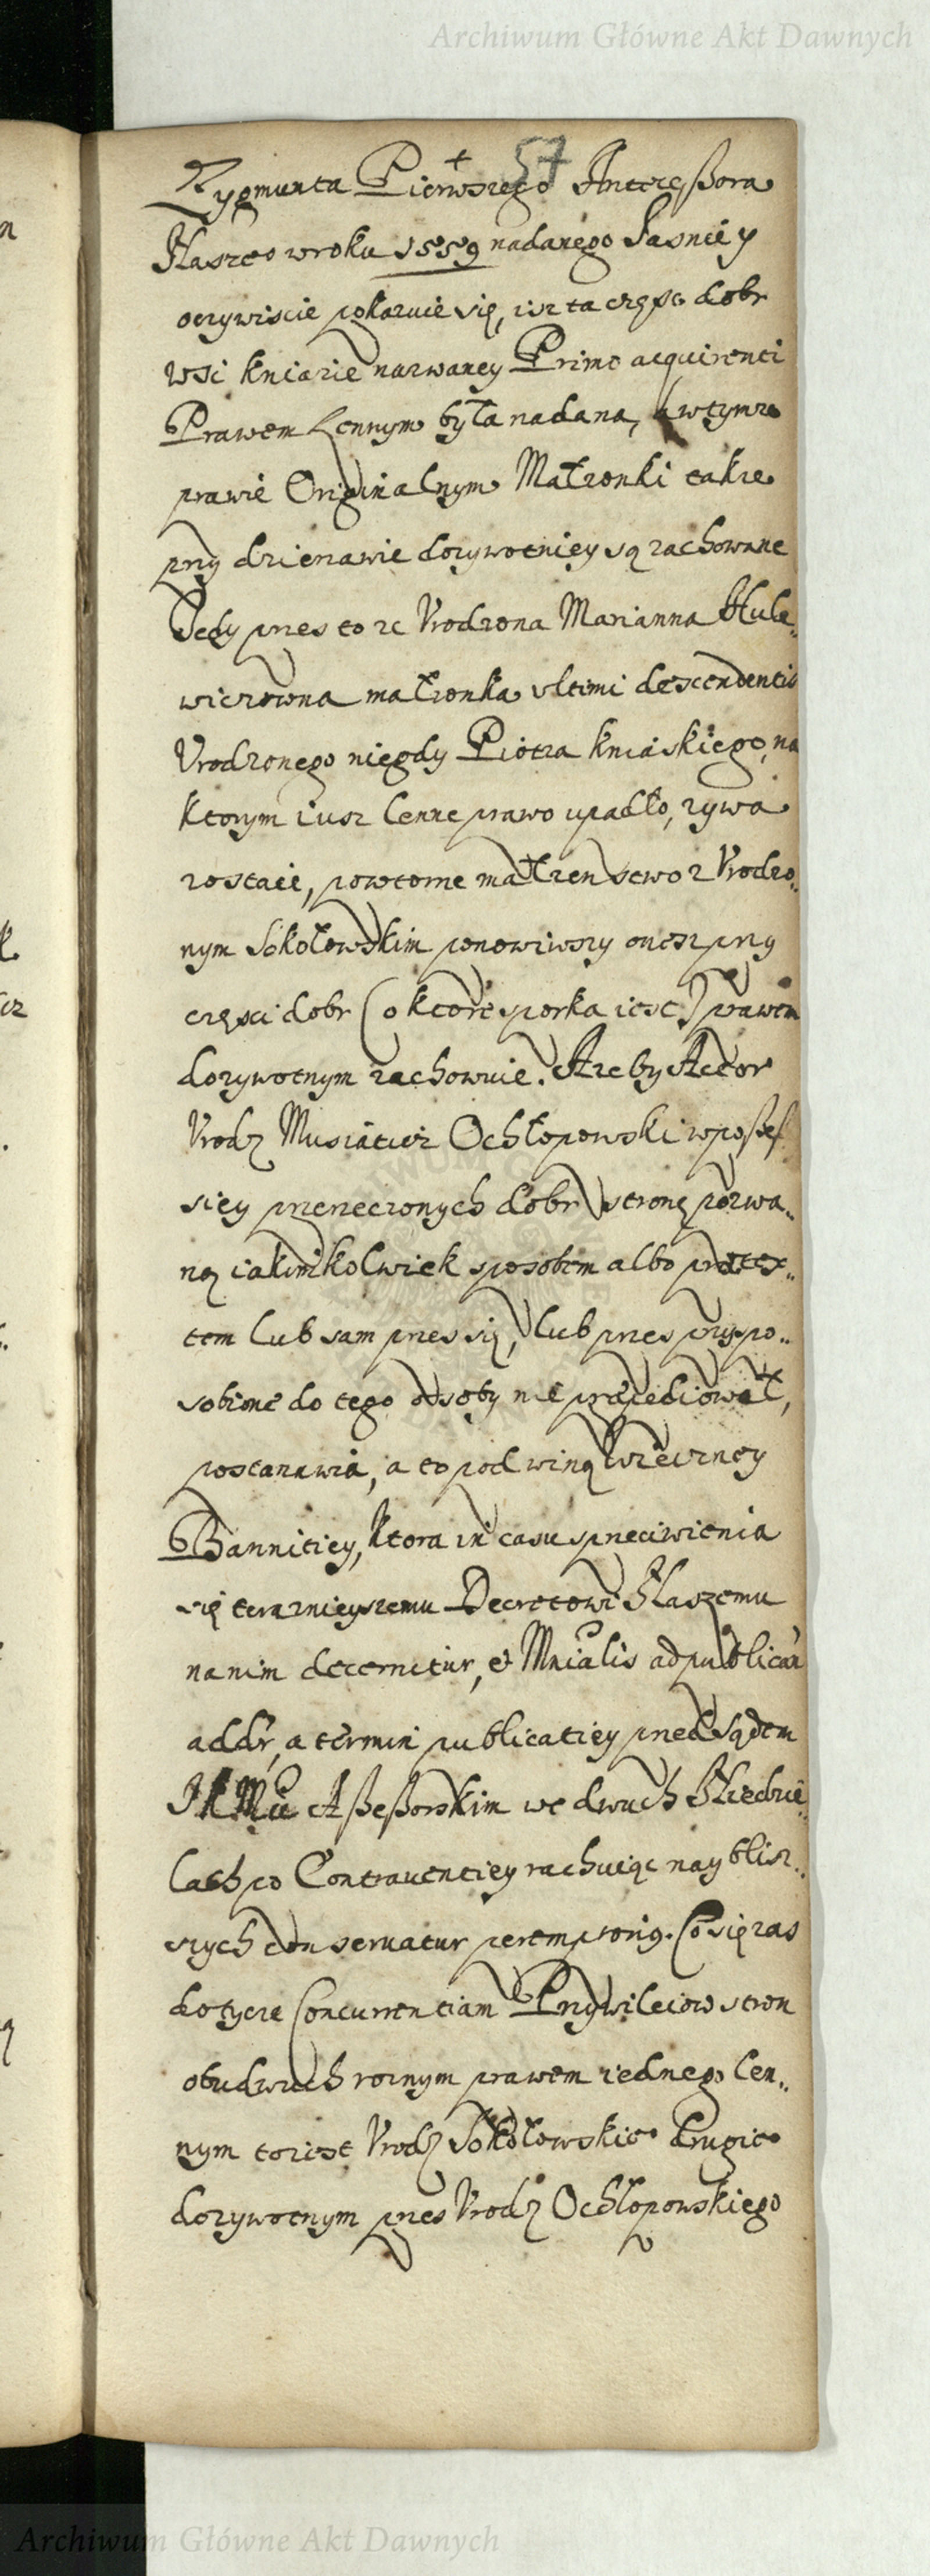 Archiwum Główne Akt Dawnych
57
Zygmunta Pierwszego Antecessora
Naszeo w roku 1559 nadanego Jasnie y
oczywiscie pokazuie się, isz ta częsc dobr
wsi kniazie nazwaney Primo acquirenti
Prawem Lennym była nadana, a wtymze
prawie Originalnym Małzonki takze
przy dzierzawie dozywotniey są zachowane
Tedy przes to ze Vrodzona Marianna Hule„
wiczowna małzonka vltimi descendentis
Vrodzonego niegdy Piotra kniaskiego, na
ktorym iusz lenne prawo upadło, zywa
zostaie, powtorne małzenstwo z Vrodzo„
nym Sokołowskim ponowiwszy onesz przy
częsci dobr (o ktore sporka iest) prawem
dozywotnym zachowuie. Aze by Actor
Vrodz Musiatiusz Ochłopowski w posses
siey przerzeczonych dobr strone pozwa„
ną iakimkolwiek sposobem albo pretex„
tem lub sam przes się, lub przes przyspo„
sobione do tego ossoby nie præpediował,
postanawia, a to pod winą wieczney
Bannitiey, ktora in casu sprzeciwienia
się teraznieyszemu Decretowi Naszemu
na nim decernitur, et Mnialis ad publican
addr, a termin publicatiey przed Sądem
Assessorskim we dwuch Niedzie„
lach po Contrauentiey rachuiąc nay blisz„
szych conseruatur peremptorię. Co się zas
dotycze Concurrentiam Przywileiow stron
obudwuch roznym prawem iednego len„
nym to iest Vrodz Sokołowskieo drugieo
dozywotnym przes Vrodz Ochłopowskiego
Archiwum Główne Akt Dawnych